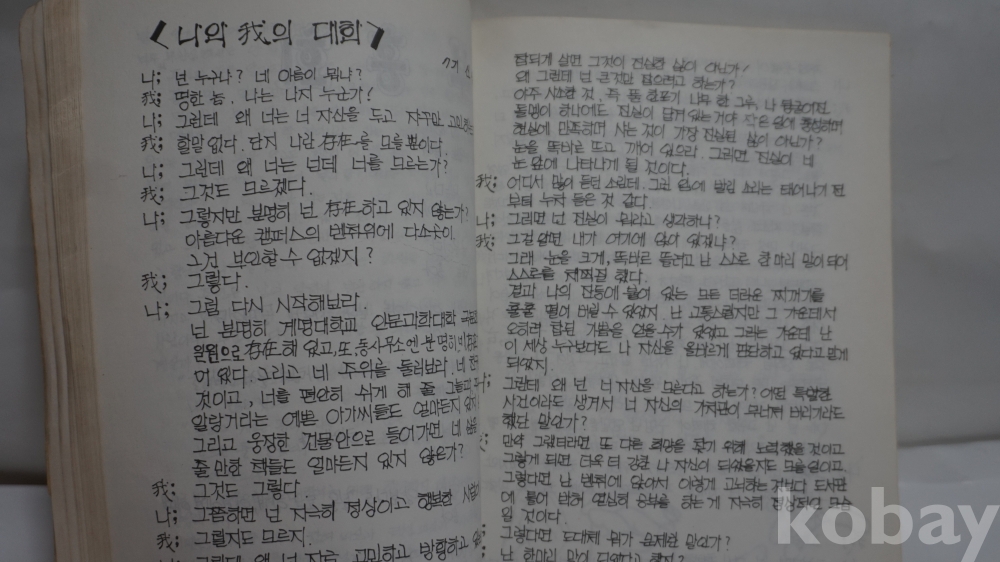 <나와 我의 대화>
나; 넌 누구냐? 네 이름이 뭐냐?
我; 멍한 놈. 나는 나지 누군가!
나; 그런데 왜 너는 너 자신을 두고 자꾸만
我; 할말 없다. 단지 나란 존재를 모를 뿐이다.
나; 그런데 왜 너는 넌데 너를 모르는가?
我; 그것도 모르겠다.
나; 그렇지만 분명히 넌 存在하고 있지 않는가?
아름다운 캠퍼스의 벤취위에 다소곳이.
그건 부인할 수 없겠지?
我; 그렇다.
나; 그럼 다시 시작해보라.
넌 분명히 계명대학교 인문과학대학
일원으로 存在해 있고, 또, 동사무소엔 분명히
어 있다. 그리고 네 주위를 둘러보라. 네
것이고, 너를 편안히 쉬게 해 줄 그늘과
알랑거리는 예쁜 아가씨들도 얼마든지 있지
그리고 웅장한 건물안으로 들어가면 네
줄 만한 책들도 얼마든지 있지 않은가?
我; 그것도 그렇다.
나; 그쯤하면 넌 지극히 정상이고 행복한
我; 그럴지도 모르지.
그런데 왜 너 자신을 고민하고 방황하고
참되게 살면 그것이 진실한 삶이 아닌가!
왜 그런데 넌 큰것만 잡으려고 하는가?
아주 사소한 것, 즉 풀 한포기 나무 한 그루, 나 뒹굴어진
돌멩이 하나에도 진실이 담겨 있는 거야 작은 일에 충실하며
현실에 만족하며 사는 것이 가장 진실된 삶이 아닌가?
눈을 똑바로 뜨고 깨어 있으라. 그러면 진실이 네
눈 앞에 나타나게 될 것이다.
我; 어디서 많이 듣던 소린데. 그런 발린 소리는 태어나기 전
부터 누차 들은 것 같다.
나; 그러면 넌 진실이 뭐라고 생각하나?
我; 그걸 알면 내가 여기에 앉아 있겠나?
그래 눈을 크게, 똑바로 뜰려고 난 스스로 한 마리 말이 되어
스스로를 채찍질 했다.
결과 나의 잔등에 붙어 있는 모든 더러운 찌꺼기를
훌훌 떨어 버릴 수 있었지. 난 고통스럽지만 그 가운데서
오히려 참된 기쁨을 얻을 수가 있었고 그러는 가운데 난
이 세상 누구보다도 나 자신을 올바르게 판단하고 있다고 믿게
되었지.
그런데 왜 넌 너 자신을 모른다고 하는가? 어떤 특별한
사건이라도 생겨서 너 자신의 가치관이 무너져 버리기라도
했단 말인가?
만약 그랬더라면 또 다른 희망을 찾기 위해 노력했을 것이고
그렇게 되면 더욱 더 강한 나 자신이 되었을지도 모를 일이고.
그렇다면 난 벤취에 앉아서 이렇게 고뇌하는 것보다 도서관
에 틀어 박혀 열심히 공부를 하는 게 지극히 정상적인 모습
일 것이다.
그렇다면 도대체 뭐가 문제란 말인가?
난 한마리 말이 되었다고 했지?
kobay